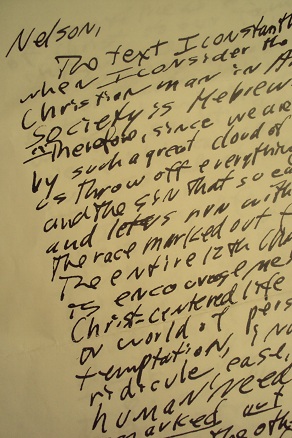 Nelson,
The text I constantly
when I consider the
Christian man in A
society is Hebrew
"Therefore, since we are
by such a great cloud of
us throw off everything
and the sin that so ea
and let us run with
the race marked out f
The entire 12th cha
is encourageme
Christ-centered life
our world of pers
temptation, in
ridicule, ease,
human need
marked out
the othe